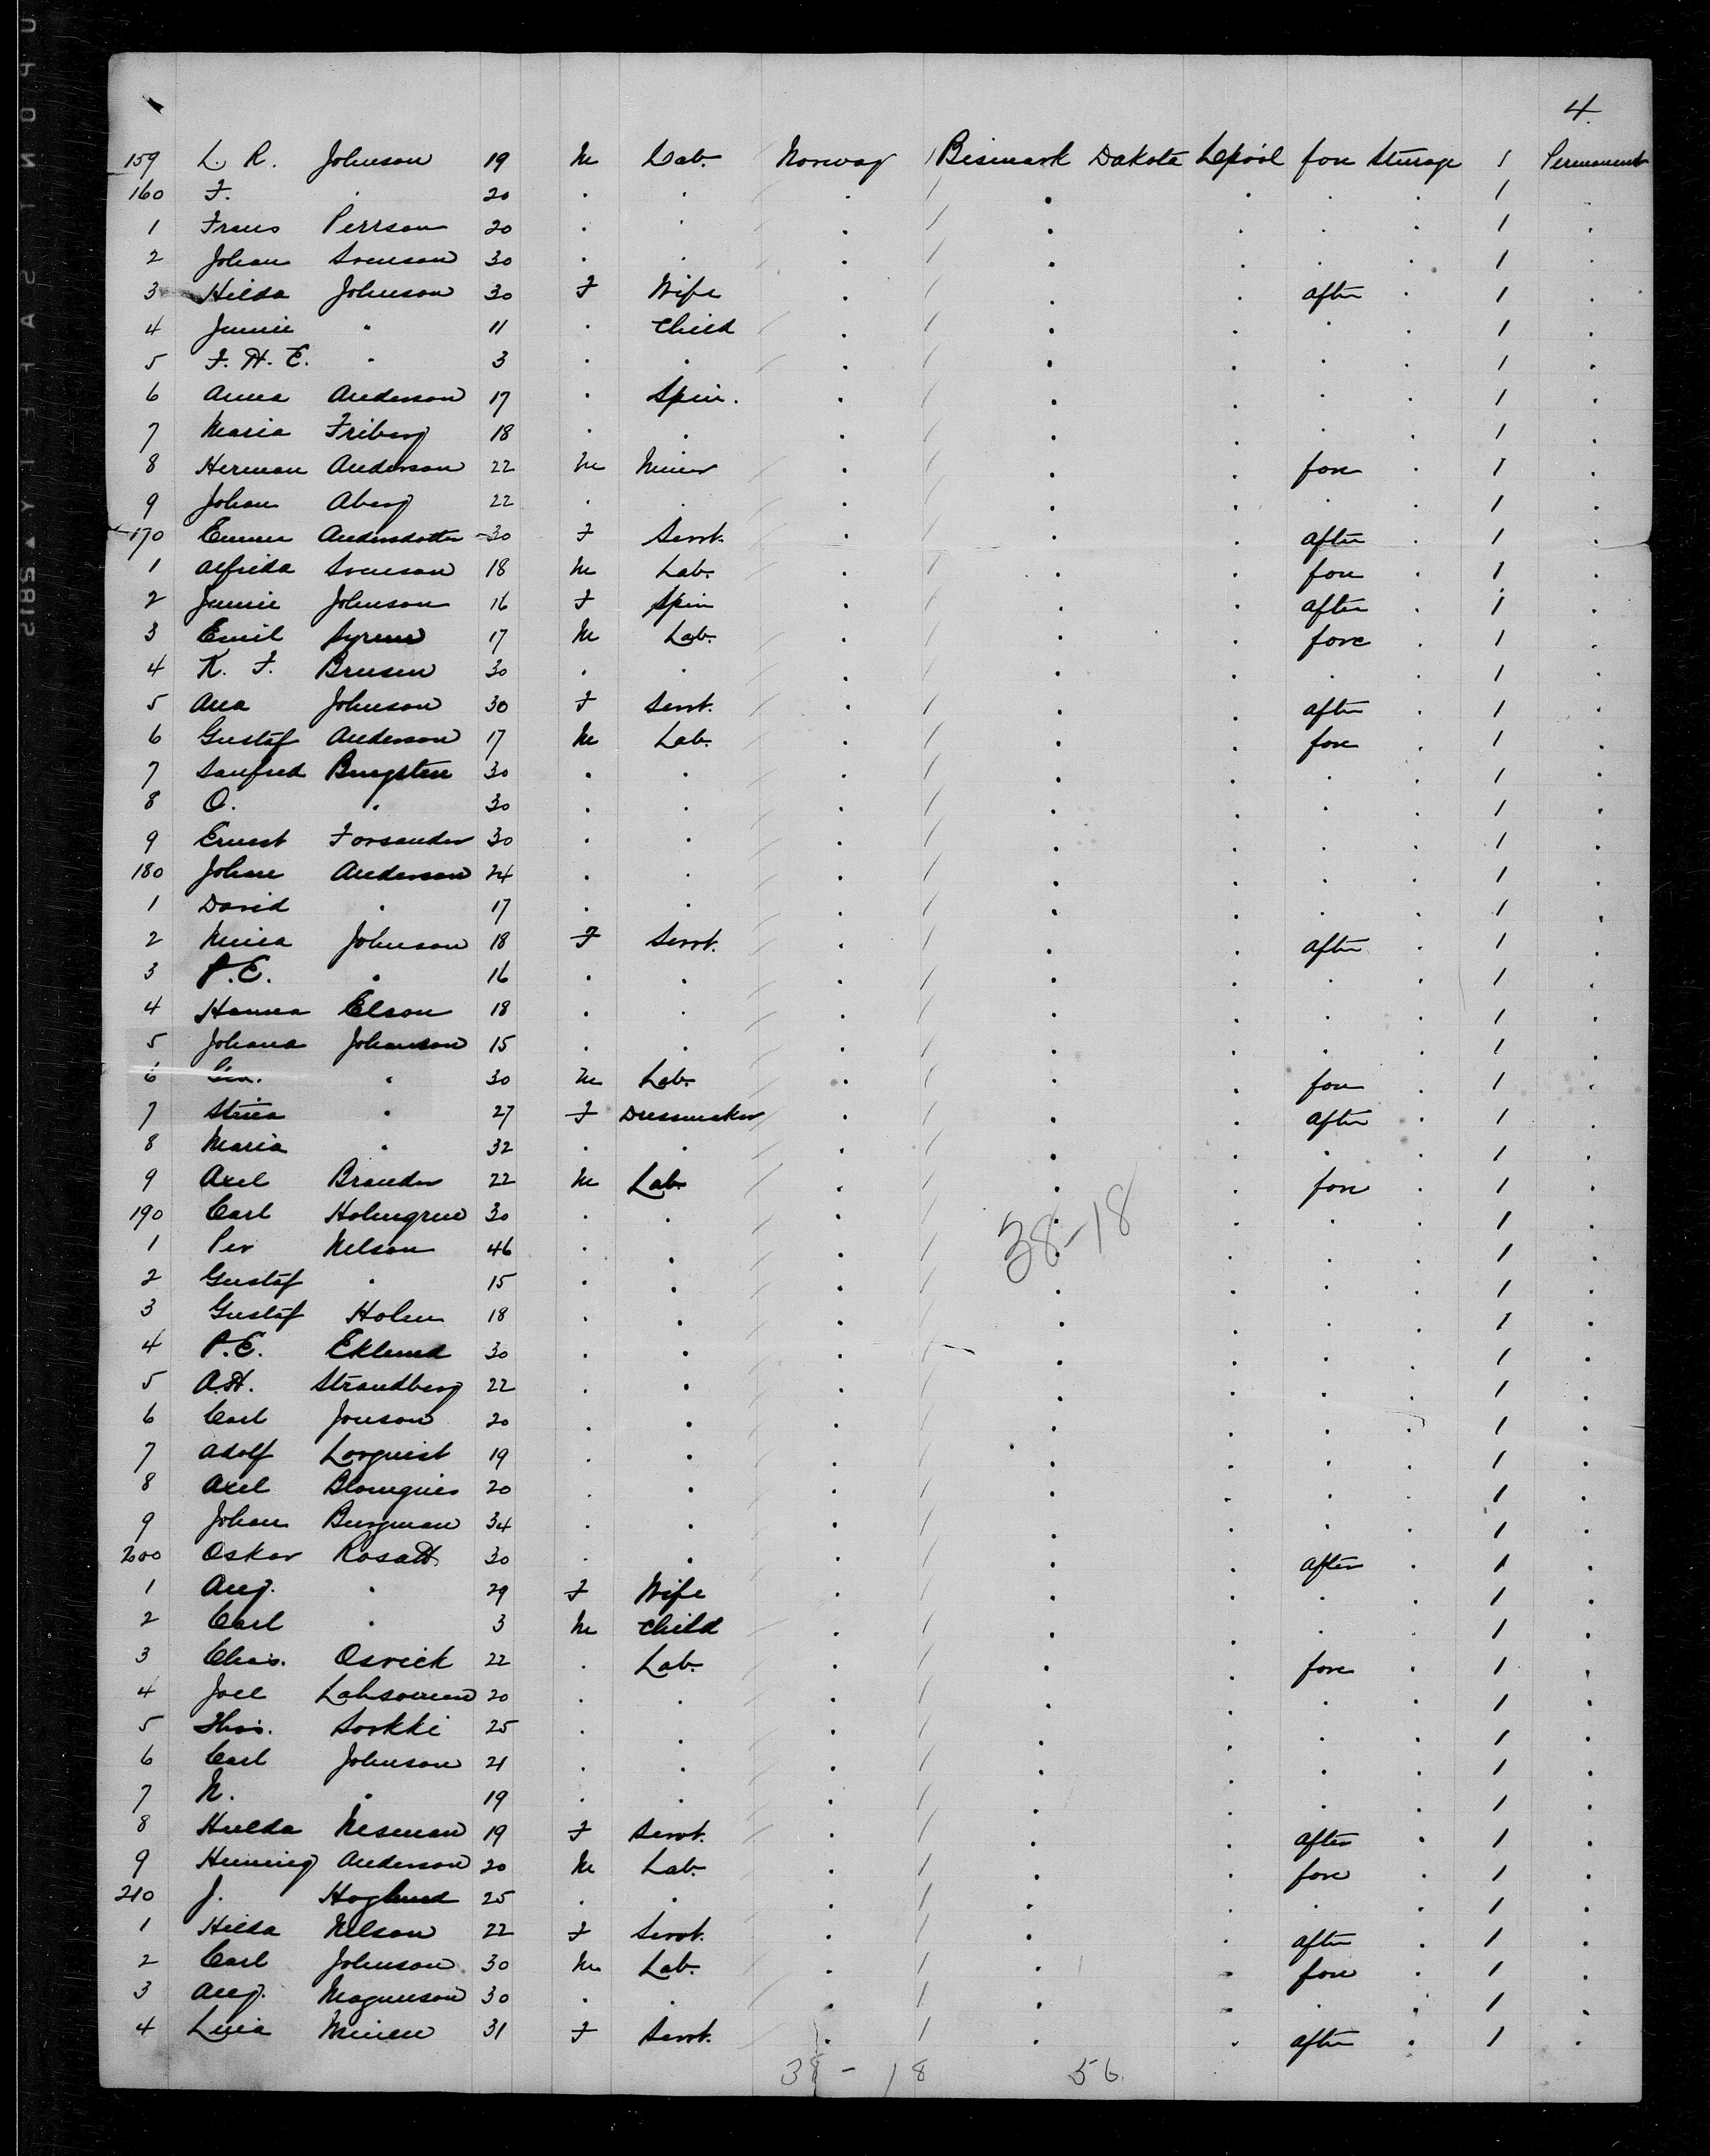 4
159 L. R. Johnson 19 M Lab. Norway / Bismark Dakota Lpool fore Steerage 1 Permanent
160 F. . 20 . . . / . . . . 1 .
1 Frans Perrson 20 . . . / . . . . 1 .
2 Johan Svenson 30 . . . / . . . . 1 .
3 Hilda Johnson 30 F Wife . / . . after . 1 .
4 Jennie " 11 . Child . / . . . . 1 .
5 F. H. E. " 3 . . . / . . . . 1 .
6 Anna Anderson 17 . Spin. . / . . . . 1 .
7 Maria Friberg 18 . . . / . . . . 1 .
8 Herman Anderson 22 M Miner . / . . fore . 1 .
9 Johan Aberg 22 . . . / . . . . 1 .
170 Emma Andersdotter 30 F Servt. . / . . after . 1 .
1 Alfrida Svenson 18 M Lab. . / . . fore . 1 .
2 Jennie Johnson 16 F Spin . / . . after . 1 .
3 Emil 17 M Lab. . / . . fore . 1 .
4 K. F. Brusen 30 . . . / . . . . 1 .
5 Ana Johnson 30 F Servt. . / . . after . 1 .
6 Gustaf Anderson 17 M Lab. . / . . fore . 1 .
7 Sanfred Bergsten 30 . . . / . . . . 1 .
8 O. . 30 . . . / . . . . 1 .
9 Ernest Forsander 30 . . . / . . . . 1 .
180 Johan Anderson 24 . . . / . . . . 1 .
1 David . 17 . . . / . . . . 1 .
2 Mina Johnson 18 F Servt. . / . . after . 1 .
3 P. E. . 16 . . . / . . . . 1 .
4 Hanna Elson 18 . . . / . . . . 1 .
5 Johana Johanson 15 . . . / . . . . 1 .
6 " 30 M Lab. . / . . fore . 1 .
7 Stina " 27 F Dressmaker . / . . after . 1 .
8 Maria . 32 . . . / . . . . 1 .
9 Axel Brander 22 M Lab. . / . . fore . 1 .
190 Carl Holmgren 30 . . . / . . . . 1 .
38-18
1 Per Nelson 46 . . . / . . . . 1 .
2 Gustaf . 15 . . . / . . . . 1 .
3 Gustaf Holm 18 . . . / . . . . 1 .
4 P. E. Eklund 30 . . . / . . . . 1 .
5 A. H. Strandberg 22 . . . / . . . . 1 .
6 Carl Jonson 20 . . . / . . . . 1 .
7 Adolf Lorquist 19 . . . / . . . . 1 .
8 Axel Blomquis 20 . . . / . . . . 1 .
9 Johan Bergman 34 . . . / . . . . 1 .
200 Oskar 30 . . . / . . after . 1 .
1 Aug. . 29 F Wife . / . . . . 1 .
2 Carl . 3 M Child . / . . . . 1 .
3 Chas. Osvick 22 . Lab. . / . . fore . 1 .
4 Joel 20 . . . / . . . . 1 .
5 Thos. Sorkki 25 . . . / . . . . 1 .
6 Carl Johnson 21 . . . / . . . . 1 .
7 N. . 19 . . . / . . . . 1 .
8 Hulda Nesman 19 F Servt. . / . . after . 1 .
9 Henning Anderson 20 M Lab. . / . . fore . 1 .
210 J. Hoglund 25 . . . / . . . . 1 .
1 Hilda Nelson 22 F Servt. . / . . after . 1 .
2 Carl Johnson 30 M Lab. . / . . fore . 1 .
3 Aug. Magnuson 30 . . . / . . . . 1 .
4 31 F Servt. . / . . after . 1 .
38 - 18 56